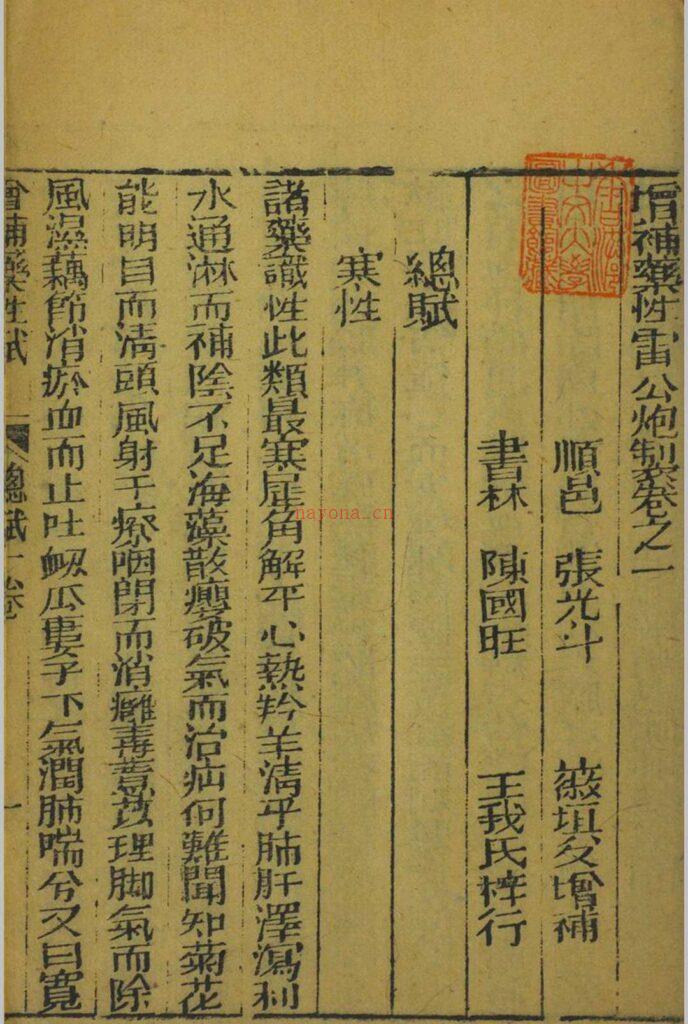 增補藥性雷公炮製卷之一
順邑　張光斗　薇垣父增補
書林　陳國旺　王我氏梓行
總賦
寒性
諸藥識性此類最寒犀角解乎心熱羚羊清乎肺肝澤瀉利
水通淋而補陰不足海藻散癭破氣而治疝何難聞知菊花
能明目而清頭風射干療咽閉而消癰毒薏苡理脚氣而除
風濕藕節消瘀血而止吐衂瓜蔞子下氣潤肺喘兮又曰寬
增補藥性賦　總賦一卷　一
nayona.cn